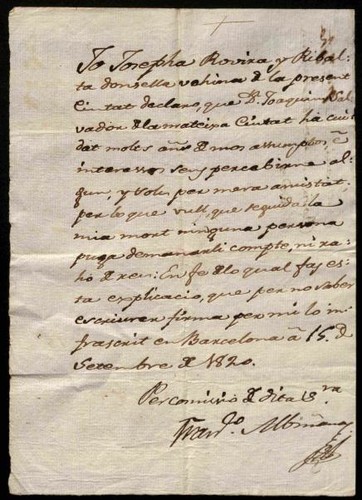 Jo Josepha Rovira y Ribal-
ta donsella vehina de la present
Ciutat declaro, que Dn. Joaquim Sal-
vador de la mateixa Ciutat ha cui-
dat molts añs de mos assumptos, é
interessos sens percebirne al-
gun, y sols per mera amistat,
per lo que vull, que seguida la
mia mort ninguna persona
puga demanarli compte, ni ra-
hó de res: En fe de lo qual fas es-
ta explicacio, que per no saber
escriurer firma per mi lo in-
frascrit en Barcelona á 15 de
Setembre de 1820.
Per comisió de dita Sra.
Franco. Albiñana